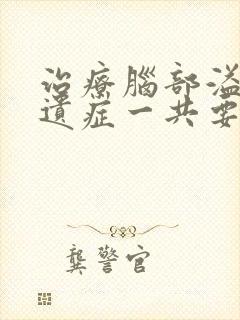 治療腦部溢
遺症一共要
龔警官